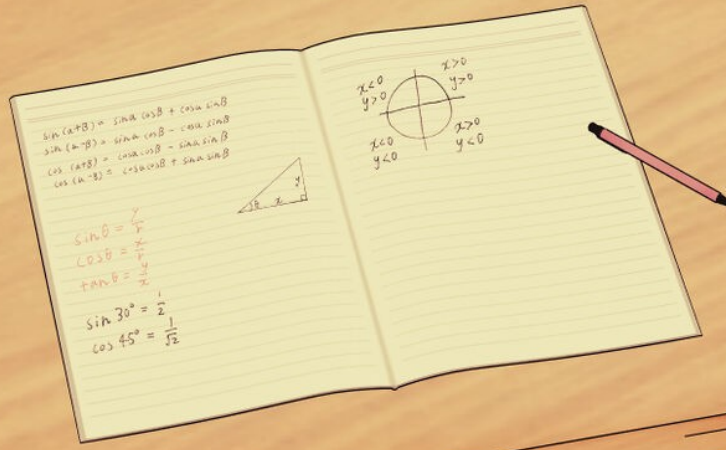 sin(α+β)= sinα cosβ + cosα sinβ
sin(α-β)= sinα cosβ - cosα sinβ
cos(α+β)= cosα cosβ - sinα sinβ
cos(α-β)= cosα cosβ + sinα sinβ
y
θ x
sinθ = y/r
cosθ = x/r
tanθ = y/x
sin 30° = 1/2
cos 45° = 1/√2
x<0 x>0
y>0 y>0
x<0 x>0
y<0 y<0